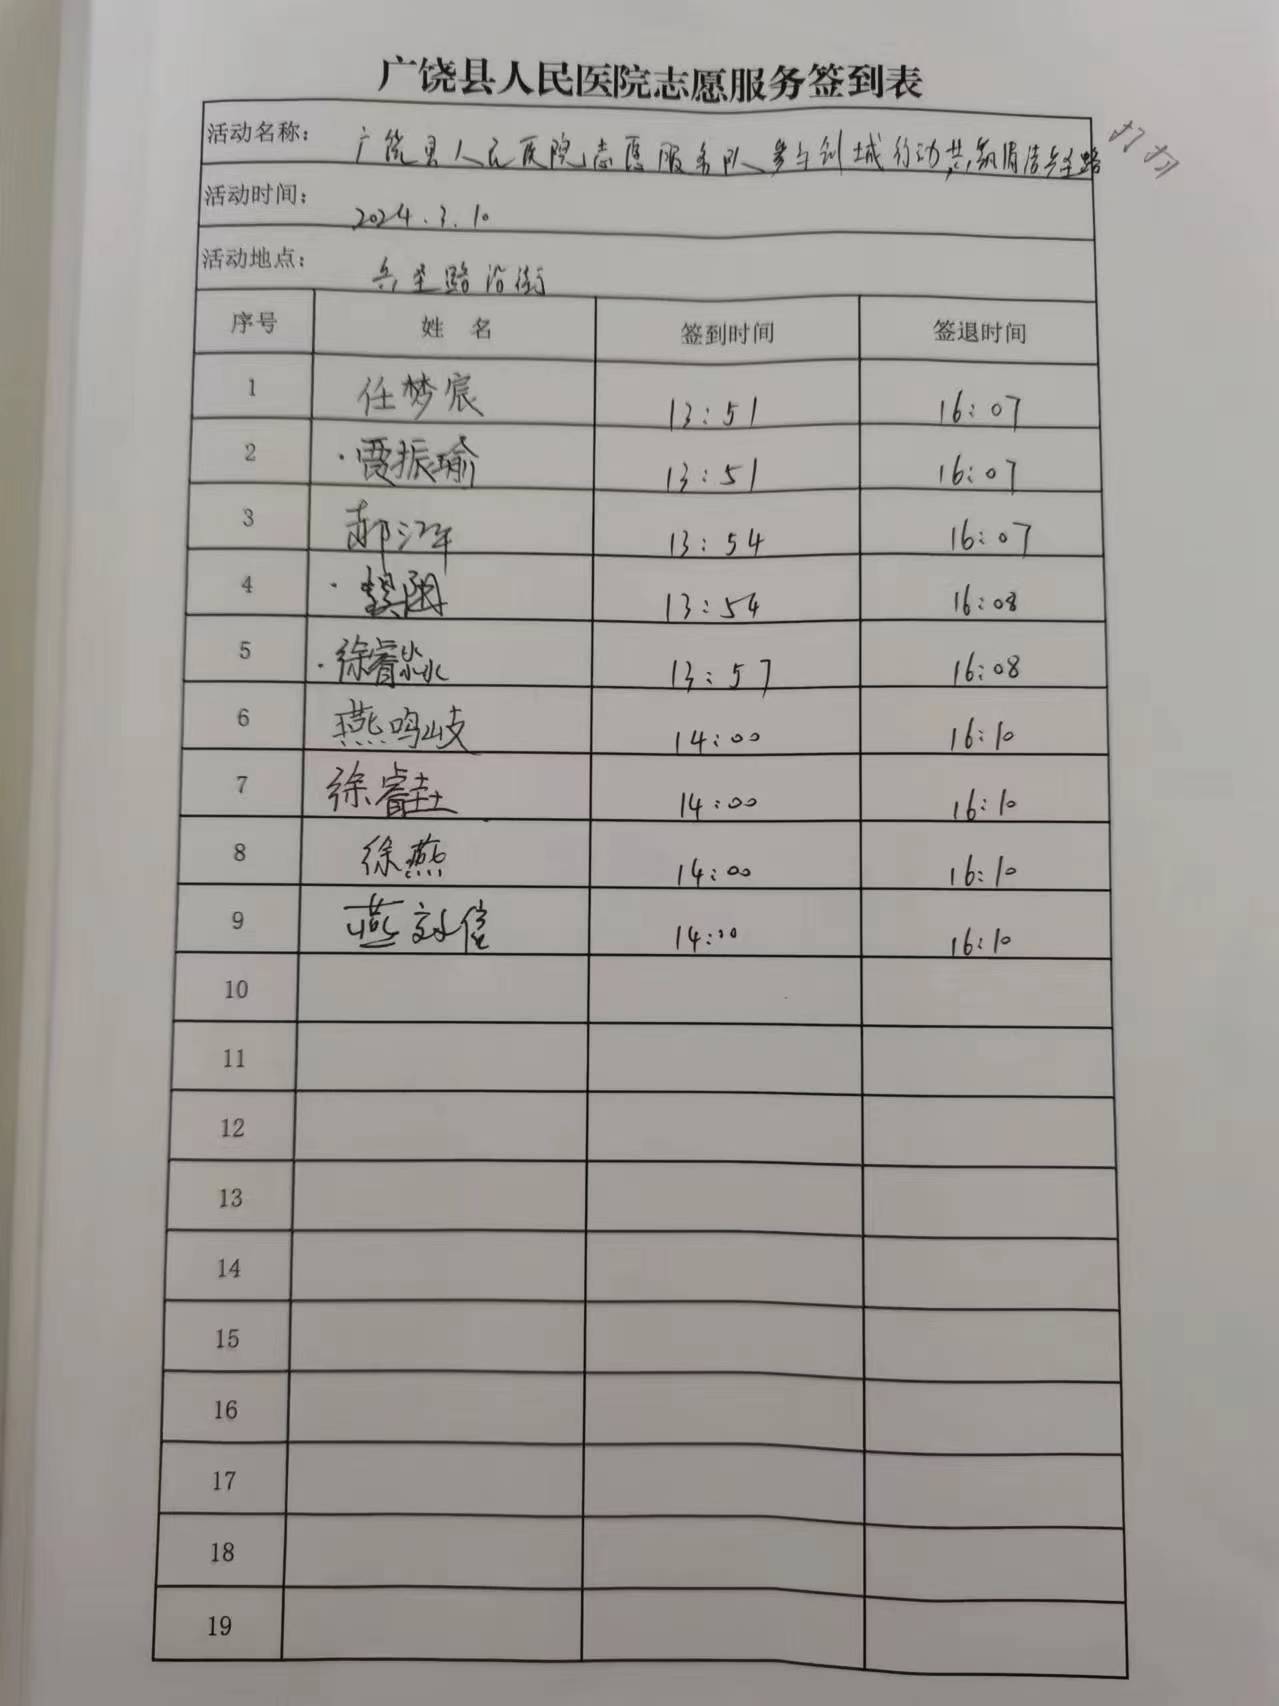 广饶县人民医院志愿服务签到表
活动名称： 广饶县人民医院志愿服务队参与创城行动，共 清 路
活动时间： 2024.3.10
活动地点： 兵圣路沿街
序号 姓 名 签到时间 签退时间
1 任梦宸 13:51 16:07
2 ·贾振瑜 13:51 16:07
3 郝 13:54 16:07
4 · 13:54 16:08
5 ·徐睿淼 13:57 16:08
6 燕鸣岐 14:00 16:10
7 徐睿 14:00 16:10
8 徐燕 14:00 16:10
9 燕 14:00 16:10
10
11
12
13
14
15
16
17
18
19